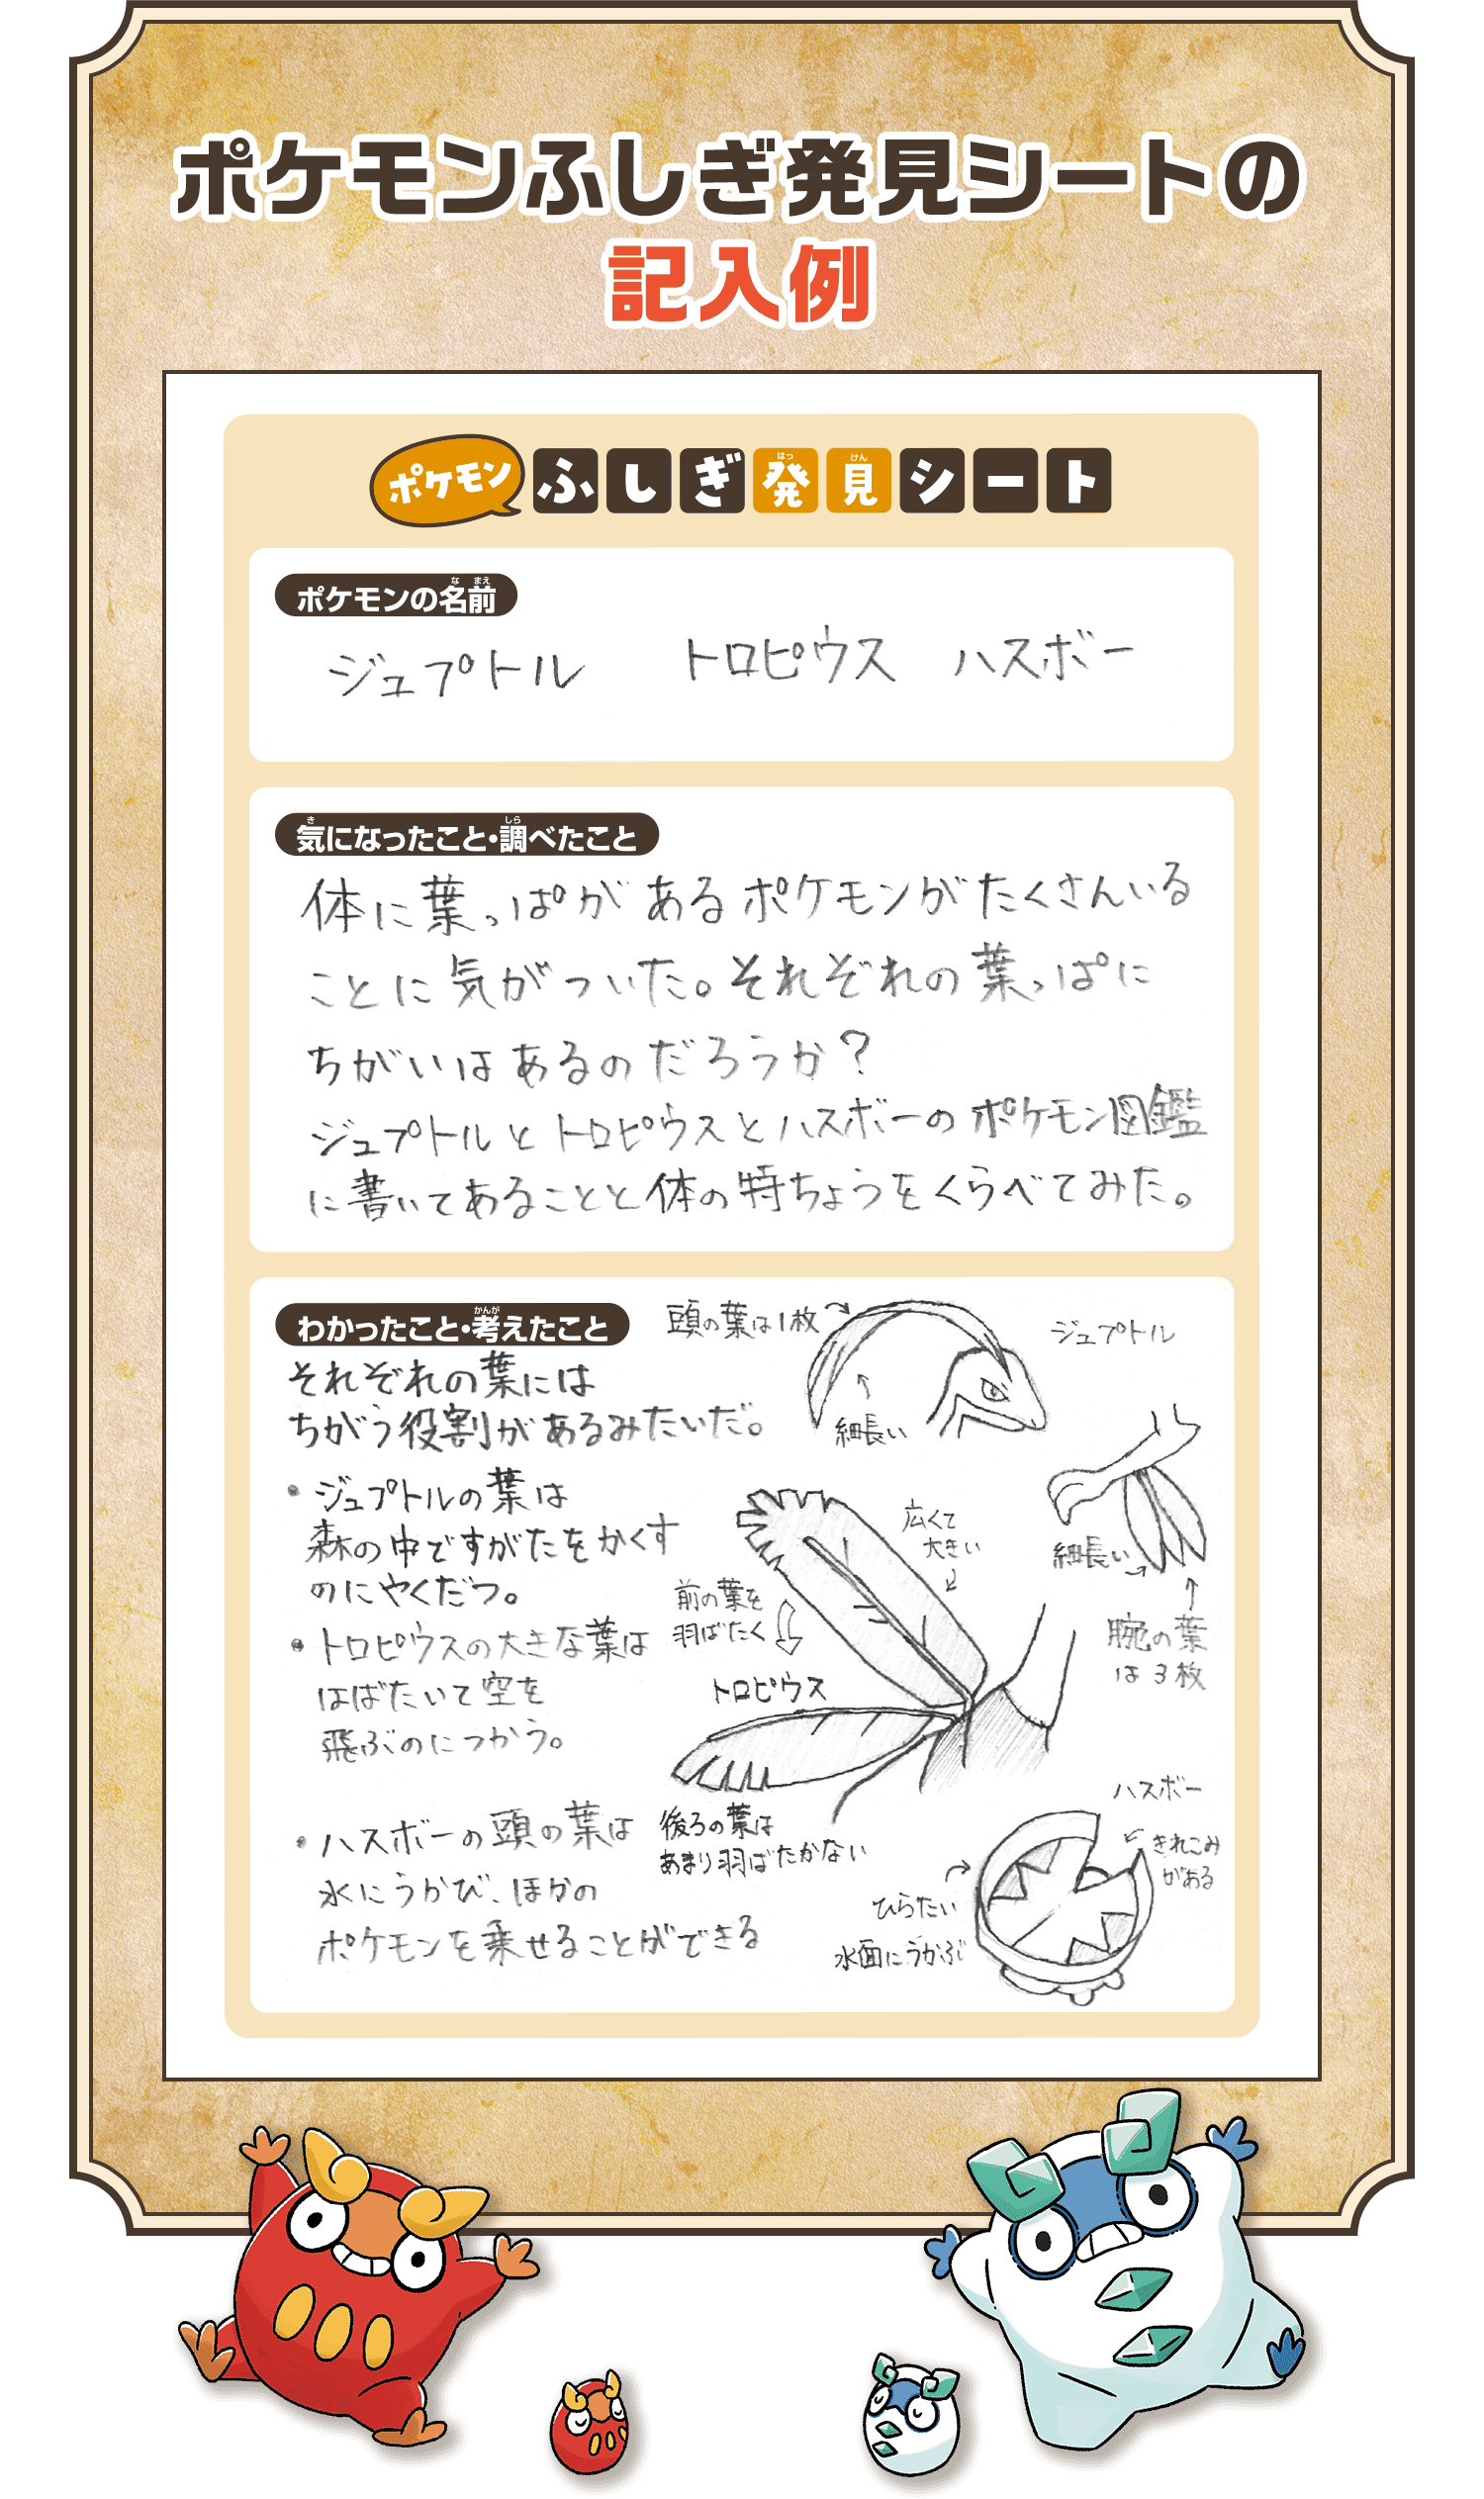 ポケモンふしぎ発見シートの
記入例
ポケモン ふしぎ発見シート
はっ けん
ポケモンの名前
な まえ
ジュプトル トロピウス ハスボー
気になったこと・調べたこと
き しら
体に葉っぱがあるポケモンがたくさんいる
ことに気がついた。それぞれの葉っぱに
ちがいはあるのだろうか?
ジュプトルとトロピウスとハスボーのポケモン図鑑
に書いてあることと体の特ちょうをくらべてみた。
わかったこと・考えたこと
かんが
それぞれの葉には
ちがう役割があるみたいだ。
・ジュプトルの葉は
森の中ですがたをかくす
のにやくだつ。
・トロピウスの大きな葉は
はばたいて空を
飛ぶのにつかう。
・ハスボーの頭の葉は
水にうかび、ほかの
ポケモンを乗せることができる
頭の葉は1枚
ジュプトル
細長い
細長い
腕の葉
は3枚
広くて
大きい
前の葉を
羽ばたく
トロピウス
後ろの葉は
あまり羽ばたかない
ハスボー
きれこみ
がある
ひらたい
水面にうかぶ